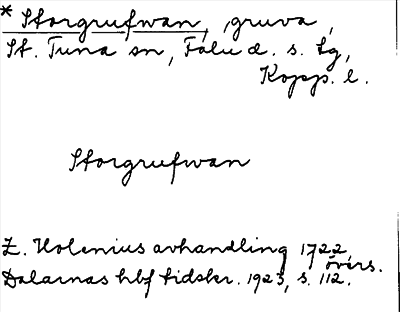 * Storgrufwan, gruva,
St. Tuna sn, Falu d. s. tg,
Kopp. l.
Storgrufwan
E. Holenius avhandling 1722
övers.
Dalarnas hbf tidskr. 1923, s. 112.